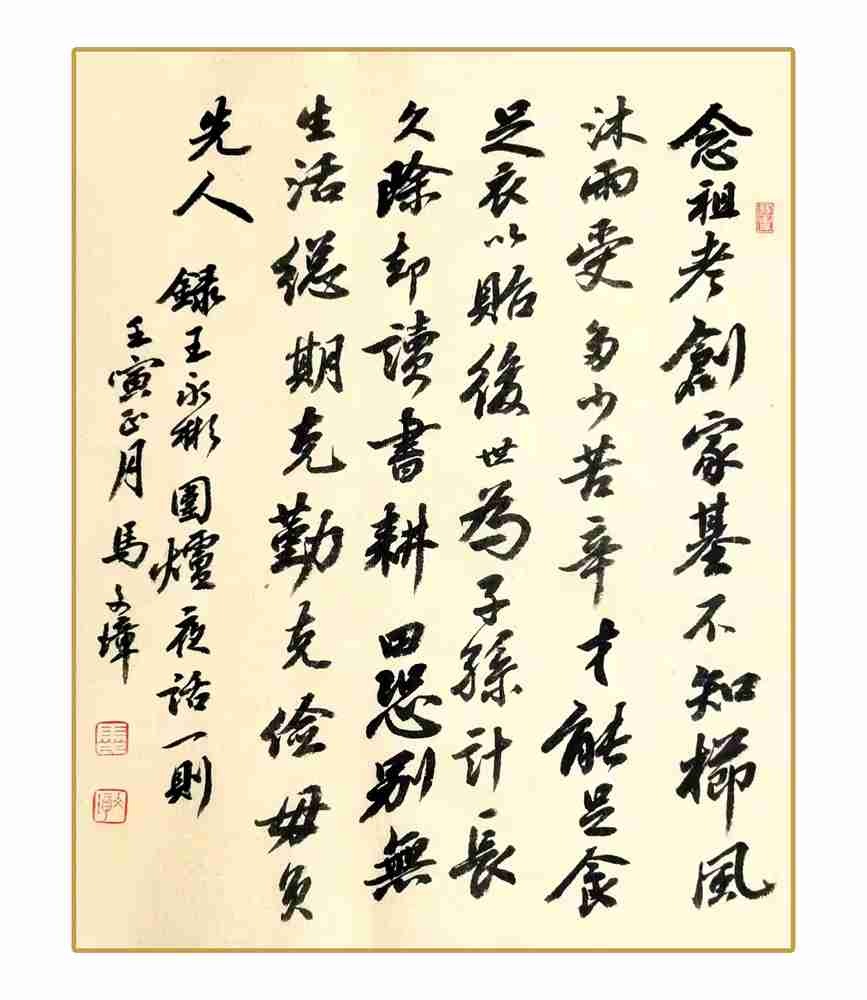 念祖考創家基不知櫛風
沐雨受多少苦辛才能足食
足衣以貽後世為子孫計長
久除却讀書耕田恐別無
生活總期克勤克儉毋負
先人
録王永彬圍爐夜話一則
壬寅正月馬文璋